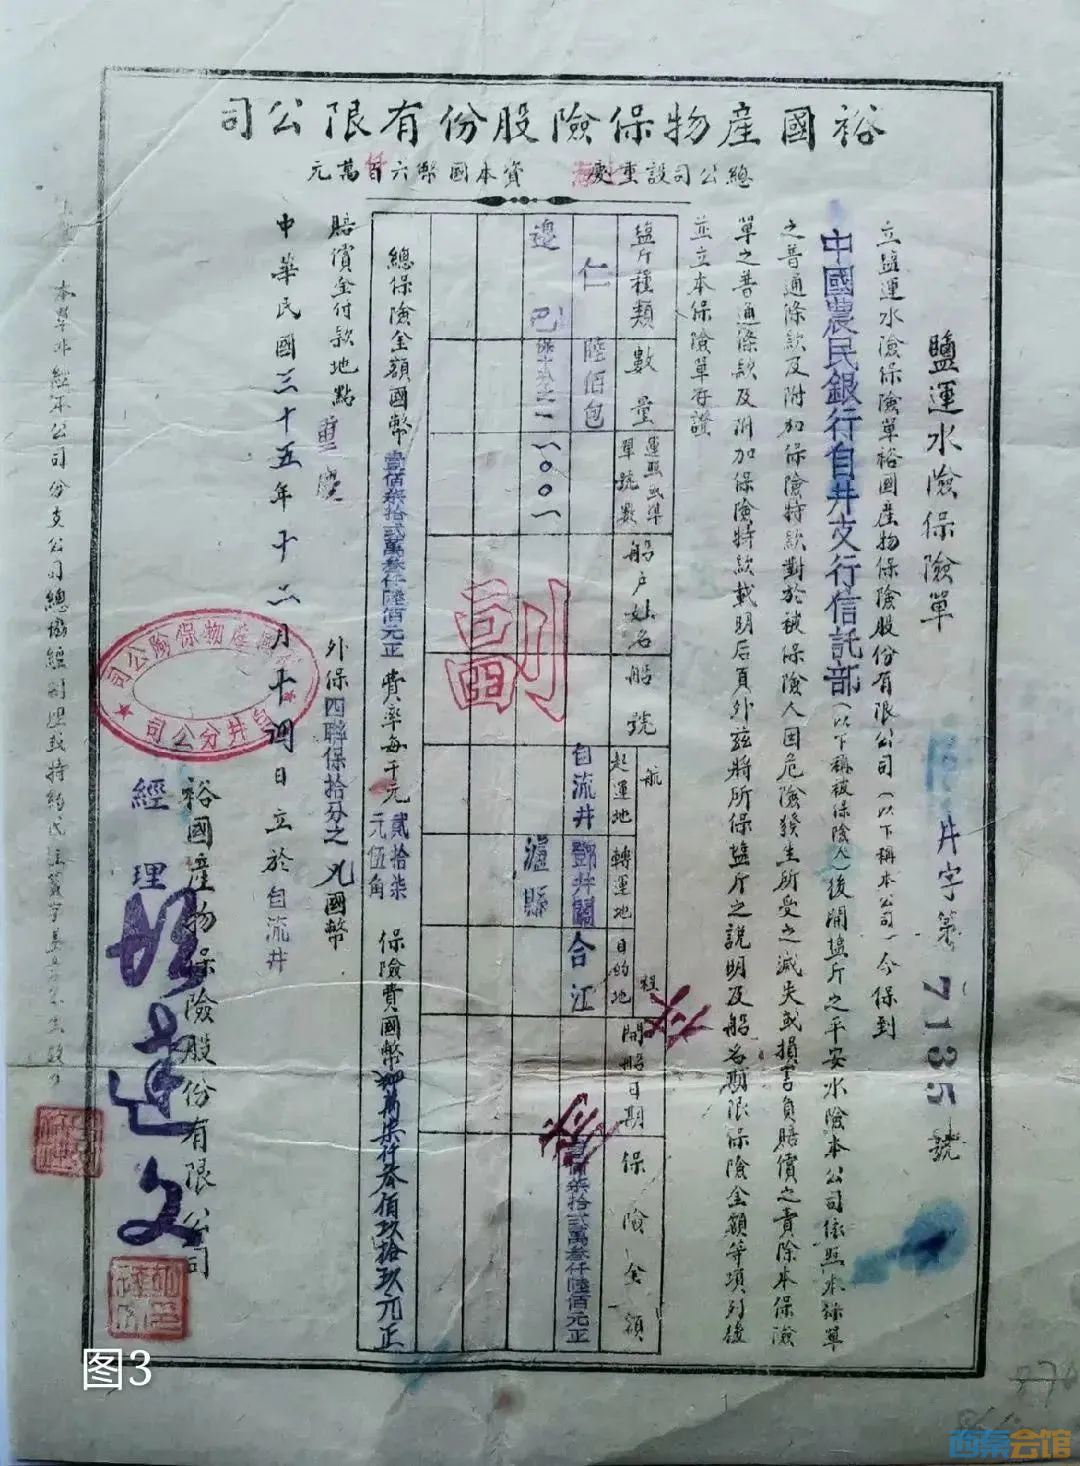 裕國産物保險股份有限公司
總公司設重慶 資本國幣六百萬元
鹽運水險保險單
井字第7135號
立鹽運水險保險單裕國産物保險股份有限公司（以下稱本公司）今保到
中國農民銀行自井支行信託部（以下稱被保險人）後開鹽斤之平安水險本公司依照本保單
之普通條款及附加保險特款對於被保險人因危險發生所受之滅失或損害負賠償之責除本保險
單之普通條款及附加保險特款載明后頁外茲將所保鹽斤之説明及船名期限保險金額等項列後
並立本保險單存證
鹽斤種類 數量 運照或準單號數 船户姓名 船號 航程 起運地 轉運地 目的地 開船日期 保險金額
仁 陸佰包 自流井 鄧井關 合江 壹佰柒拾貳萬叁仟陸佰元正
邊巴 一一〇〇一 瀘縣
副
總保險金額國幣壹佰柒拾貳萬叁仟陸佰元正 費率每千元貳拾柒元伍角 保險費國幣肆萬柒仟叁佰玖拾玖元正
外保四聯保拾分之 國幣
賠償金付款地點 重慶
中華民國三十五年十二月十四日立於自流井
裕國産物保險股份有限公司
經理
國産物保險公司
自井分公司
本單非經本公司份支公司總協經副理或特約代
图3
西秦会馆